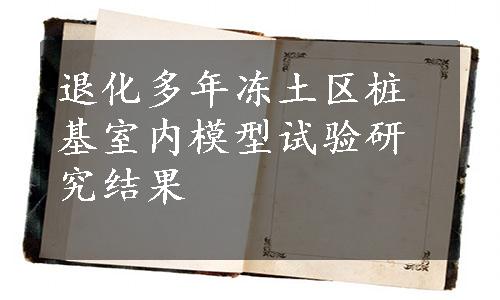 退化多年冻土区桩
基室内模型试验研
究结果